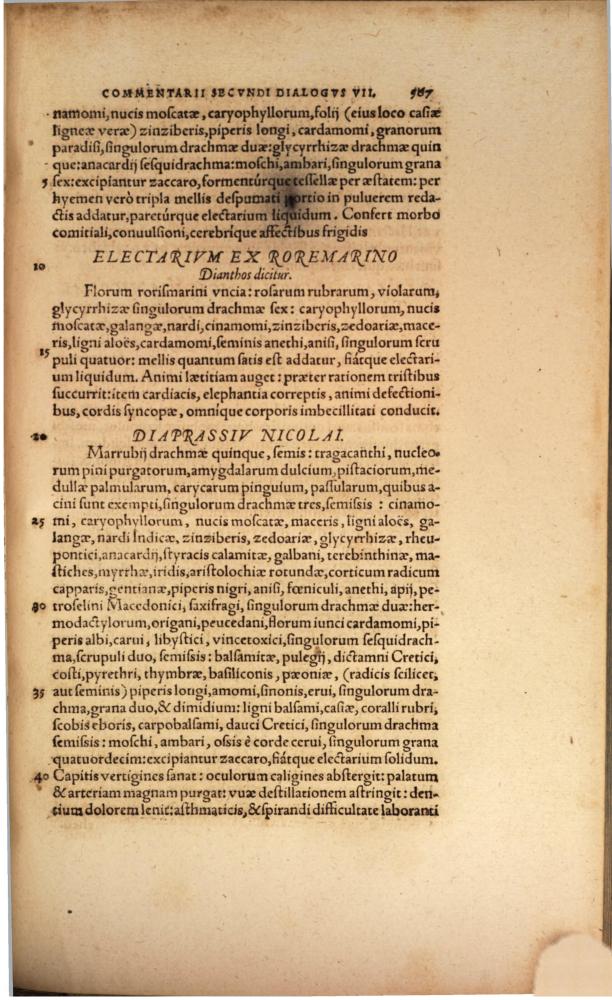 COMMENTARII SECVNDI DIALOGVS VII. 987
namomi, nucis moſcatæ, caryophyllorum, folij (eius loco caſiæ
ligneæ veræ) zinziberis, piperis longi, cardamomi, granorum
paradiſi, ſingulorum drachmæ duæ: glycyrrhizæ drachmæ quin
que: anacardij ſeſquidrachma: moſchi, ambari, ſingulorum grana
5 ſex: excipiantur zaccaro, formentúrque teſſellæ per æſtatem: per
hyemen verò tripla mellis deſpumati portio in puluerem reda-
ctis addatur, paretúrque electarium liquidum. Confert morbo
comitiali, conuulſioni, cerebrique affectibus frigidis
ELECTARIVM EX ROREMARINO
10 Dianthos dicitur.
Florum roriſmarini vncia: roſarum rubrarum, violarum,
glycyrrhizæ ſingulorum drachmæ ſex: caryophyllorum, nucis
moſcatæ, galangæ, nardi, cinamomi, zinziberis, zedoariæ, mace-
ris, ligni aloës, cardamomi, ſeminis anethi, aniſi, ſingulorum ſcru
15 puli quatuor: mellis quantum ſatis eſt addatur, fiátque electari-
um liquidum. Animi lætitiam auget: præter rationem triſtibus
ſuccurrit: item cardiacis, elephantia correptis, animi defectioni-
bus, cordis ſyncopæ, omnique corporis imbecillitati conducit.
20 DIAPRASSIV NICOLAI.
Marrubij drachmæ quinque, ſemis: tragacanthi, nucleo-
rum pini purgatorum, amygdalarum dulcium, piſtaciorum, me-
dullæ palmularum, carycarum pinguium, paſſularum, quibus a-
cini ſunt exempti, ſingulorum drachmæ tres, ſemiſsis: cinamo-
25 mi, caryophyllorum, nucis moſcatæ, maceris, ligni aloës, ga-
langæ, nardi Indicæ, zinziberis, zedoariæ, glycyrrhizæ, rheu-
pontici, anacardij, ſtyracis calamitæ, galbani, terebinthinæ, ma-
ſtiches, myrrhæ, iridis, ariſtolochiæ rotundæ, corticum radicum
capparis, gentianæ, piperis nigri, aniſi, fœniculi, anethi, apij, pe-
30 troſelini Macedonici, ſaxifragi, ſingulorum drachmæ duæ: her-
modactylorum, origani, peucedani, florum iunci cardamomi, pi-
peris albi, carui, libyſtici, vincetoxici, ſingulorum ſeſquidrach-
ma, ſcrupuli duo, ſemiſsis: balſamitæ, pulegij, dictamni Cretici,
coſti, pyrethri, thymbræ, baſiliconis, pæoniæ, (radicis ſcilicet,
35 aut ſeminis) piperis longi, amomi, ſinonis, erui, ſingulorum dra-
chma, grana duo, & dimidium: ligni balſami, caſiæ, coralli rubri,
ſcobis eboris, carpobalſami, dauci Cretici, ſingulorum drachma
ſemiſsis: moſchi, ambari, oſsis è corde cerui, ſingulorum grana
quatuordecim: excipiantur zaccaro, fiátque electarium ſolidum.
40 Capitis vertigines ſanat: oculorum caligines abſtergit: palatum
& arteriam magnam purgat: vuæ deſtillationem aſtringit: den-
tium dolorem lenit: aſthmaticis, & ſpirandi difficultate laboranti